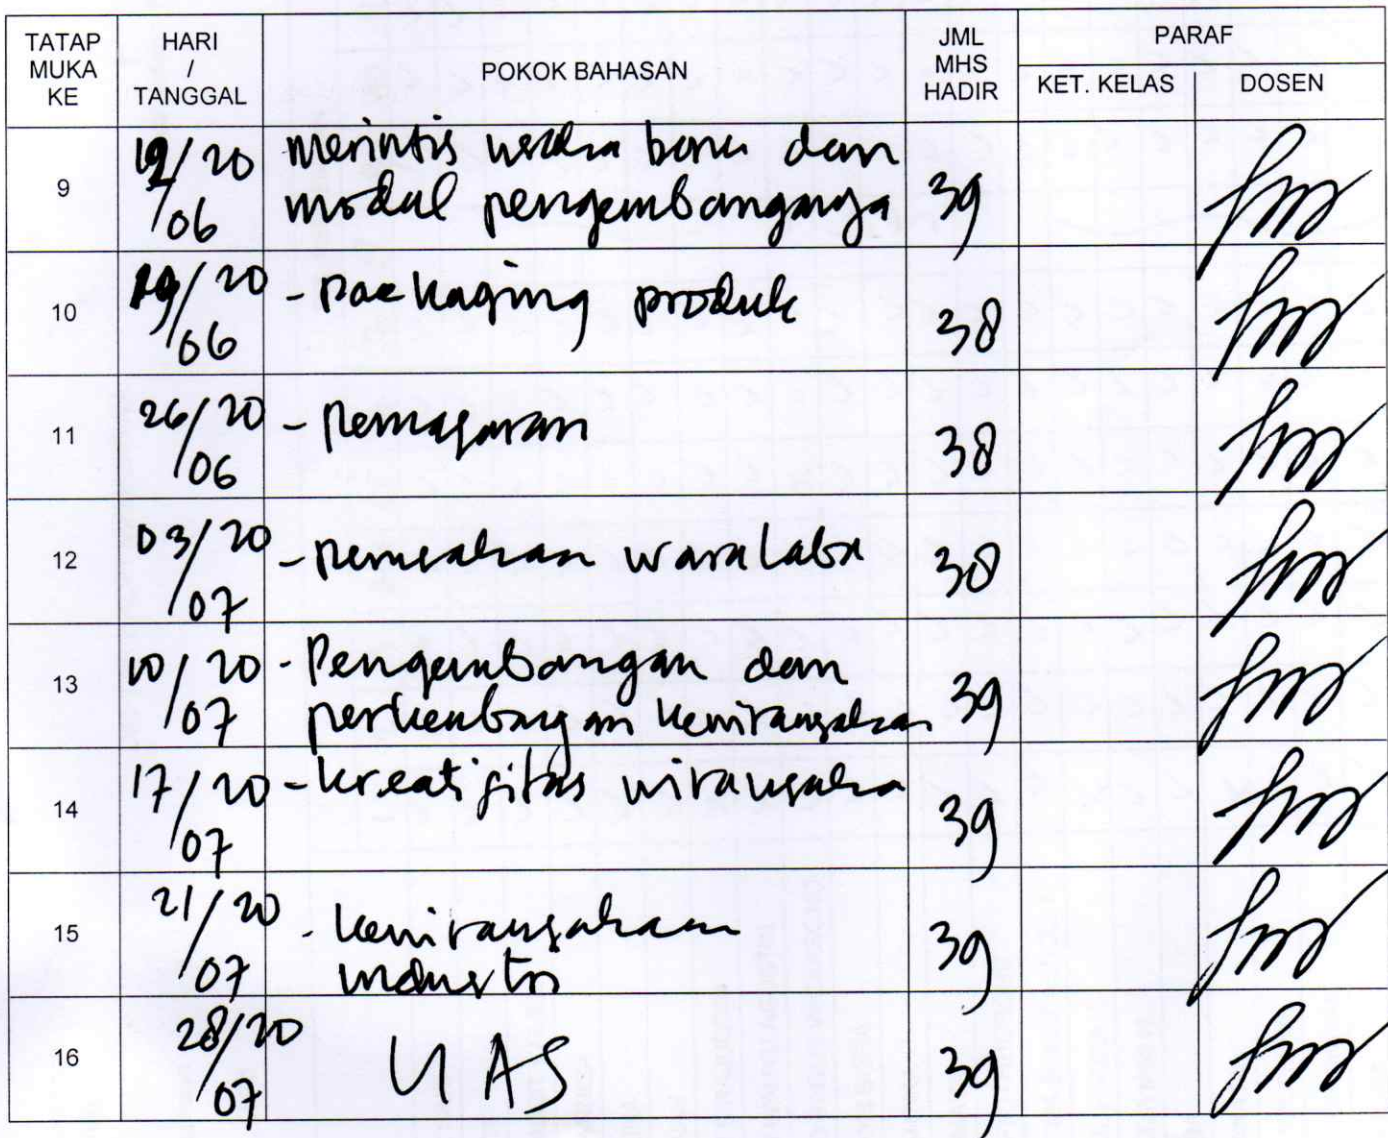 TATAP MUKA KE HARI / TANGGAL POKOK BAHASAN JML MHS HADIR PARAF
KET. KELAS DOSEN
9 12/20 merintis usaha baru dan
/06 modal pengembanganya 39
10 19/20 - Packaging produk
/06 38
11 26/20 - Pemasaran
/06 38
12 03/20 - perusahaan waralaba 38
/07
13 10/20 - Pengembangan dan
/07 perkembangan kewirausahaan 39
14 17/20 - kreatifitas wirausaha
/07 39
15 21/20 - kewirausahaan
/07 industri 39
16 28/20 UAS 39
/07